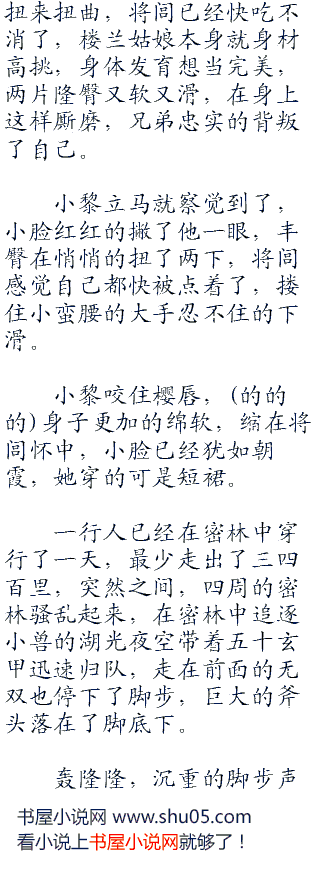 扭来扭曲，将闾已经快吃不
消了，楼兰姑娘本身就身材
高挑，身体发育想当完美，
两片隆臀又软又滑，在身上
这样厮磨，兄弟忠实的背叛
了自己。
小黎立马就察觉到了，
小脸红红的撇了他一眼，丰
臀在悄悄的扭了两下，将闾
感觉自己都快被点着了，搂
住小蛮腰的大手忍不住的下
滑。
小黎咬住樱唇，(的的
的)身子更加的绵软，缩在将
闾怀中，小脸已经犹如朝
霞，她穿的可是短裙。
一行人已经在密林中穿
行了一天，最少走出了三四
百里，突然之间，四周的密
林骚乱起来，在密林中追逐
小兽的湖光夜空带着五十玄
甲迅速归队，走在前面的无
双也停下了脚步，巨大的斧
头落在了脚底下。
轰隆隆，沉重的脚步声
书屋小说网 www.shu05.com
看小说上书屋小说网就够了！